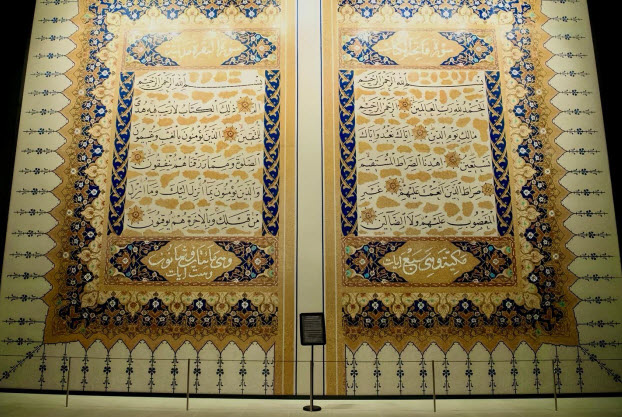 سورة فاتحة الكتاب
بسم الله الرحمن الرحيم
الحمد لله رب العالمين الرحمن الرحيم
مالك يوم الدين اياك نعبد واياك
نستعين اهدنا الصراط المستقيم
صراط الذين انعمت عليهم غير
المغضوب عليهم ولا الضالين
مكية وهي سبع آيات
سورة البقرة مدنية
بسم الله الرحمن الرحيم
الم ذلك الكتاب لا ريب فيه هدى
للمتقين الذين يؤمنون بالغيب ويقيمون
الصلوة ومما رزقناهم ينفقون
والذين يؤمنون بما انزل اليك وما انزل
من قبلك وبالآخرة هم يوقنون
وهي مائتان وثمانون
وست آيات